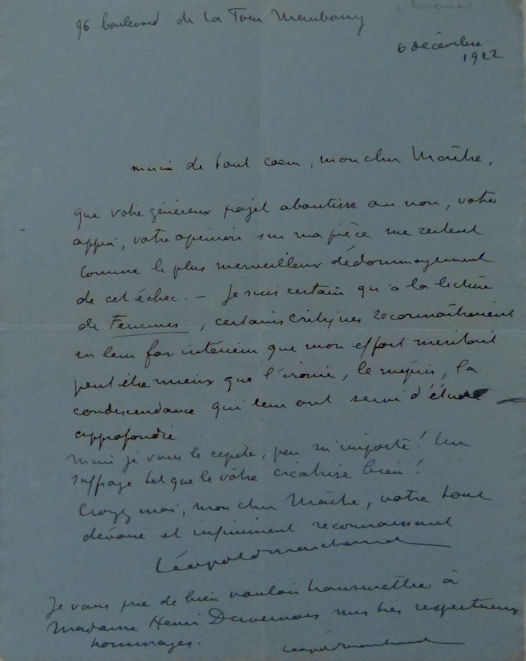 96 boulevard de La Tour Maubourg
6 décembre
1922
merci de tout coeur, mon cher Maître,
que votre généreux projet aboutisse ou non, votre
appui, votre opinion sur ma pièce me restent
comme le plus merveilleux dédommagement
de cet échec. — Je suis certain qu'à la lecture
de Femmes, certains critiques reconnaîtraient
en leur for intérieur que mon effort méritait
peut être mieux que l'ironie, le mépris, la
condescendance qui leur ont servi d'étude
approfondie.
Mais je vous le repète, peu m'importe! Un
suffrage tel que le vôtre cicatrise bien!
Croyez moi, mon cher Maître, votre tout
dévoué et infiniment reconnaissant
Léopold Marchand
Je vous prie de bien vouloir transmettre à
Madame Henri Duvernois mes très respectueux
hommages.
Léopold Marchand